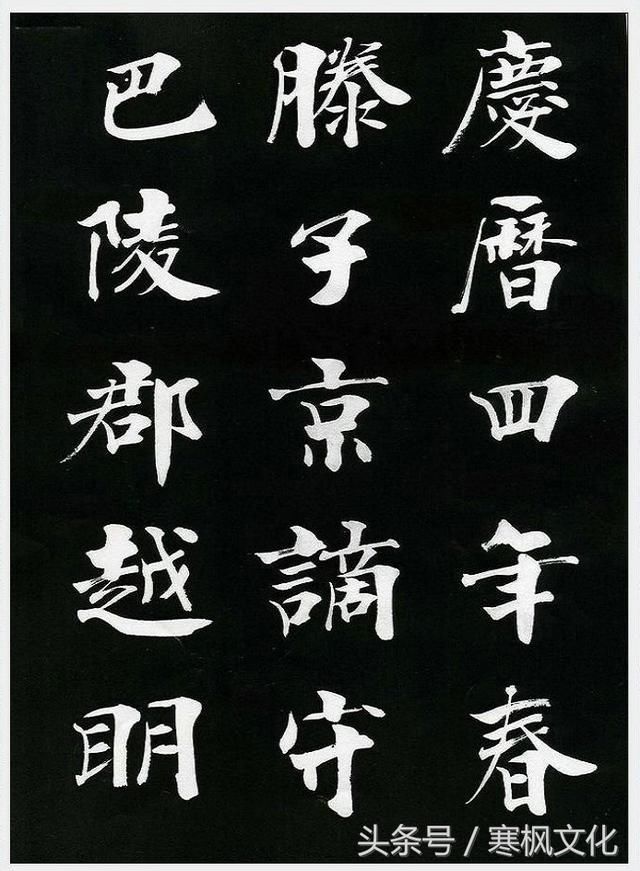 慶曆四年春
滕子京謫守
巴陵郡越明
头条号 / 寒枫文化